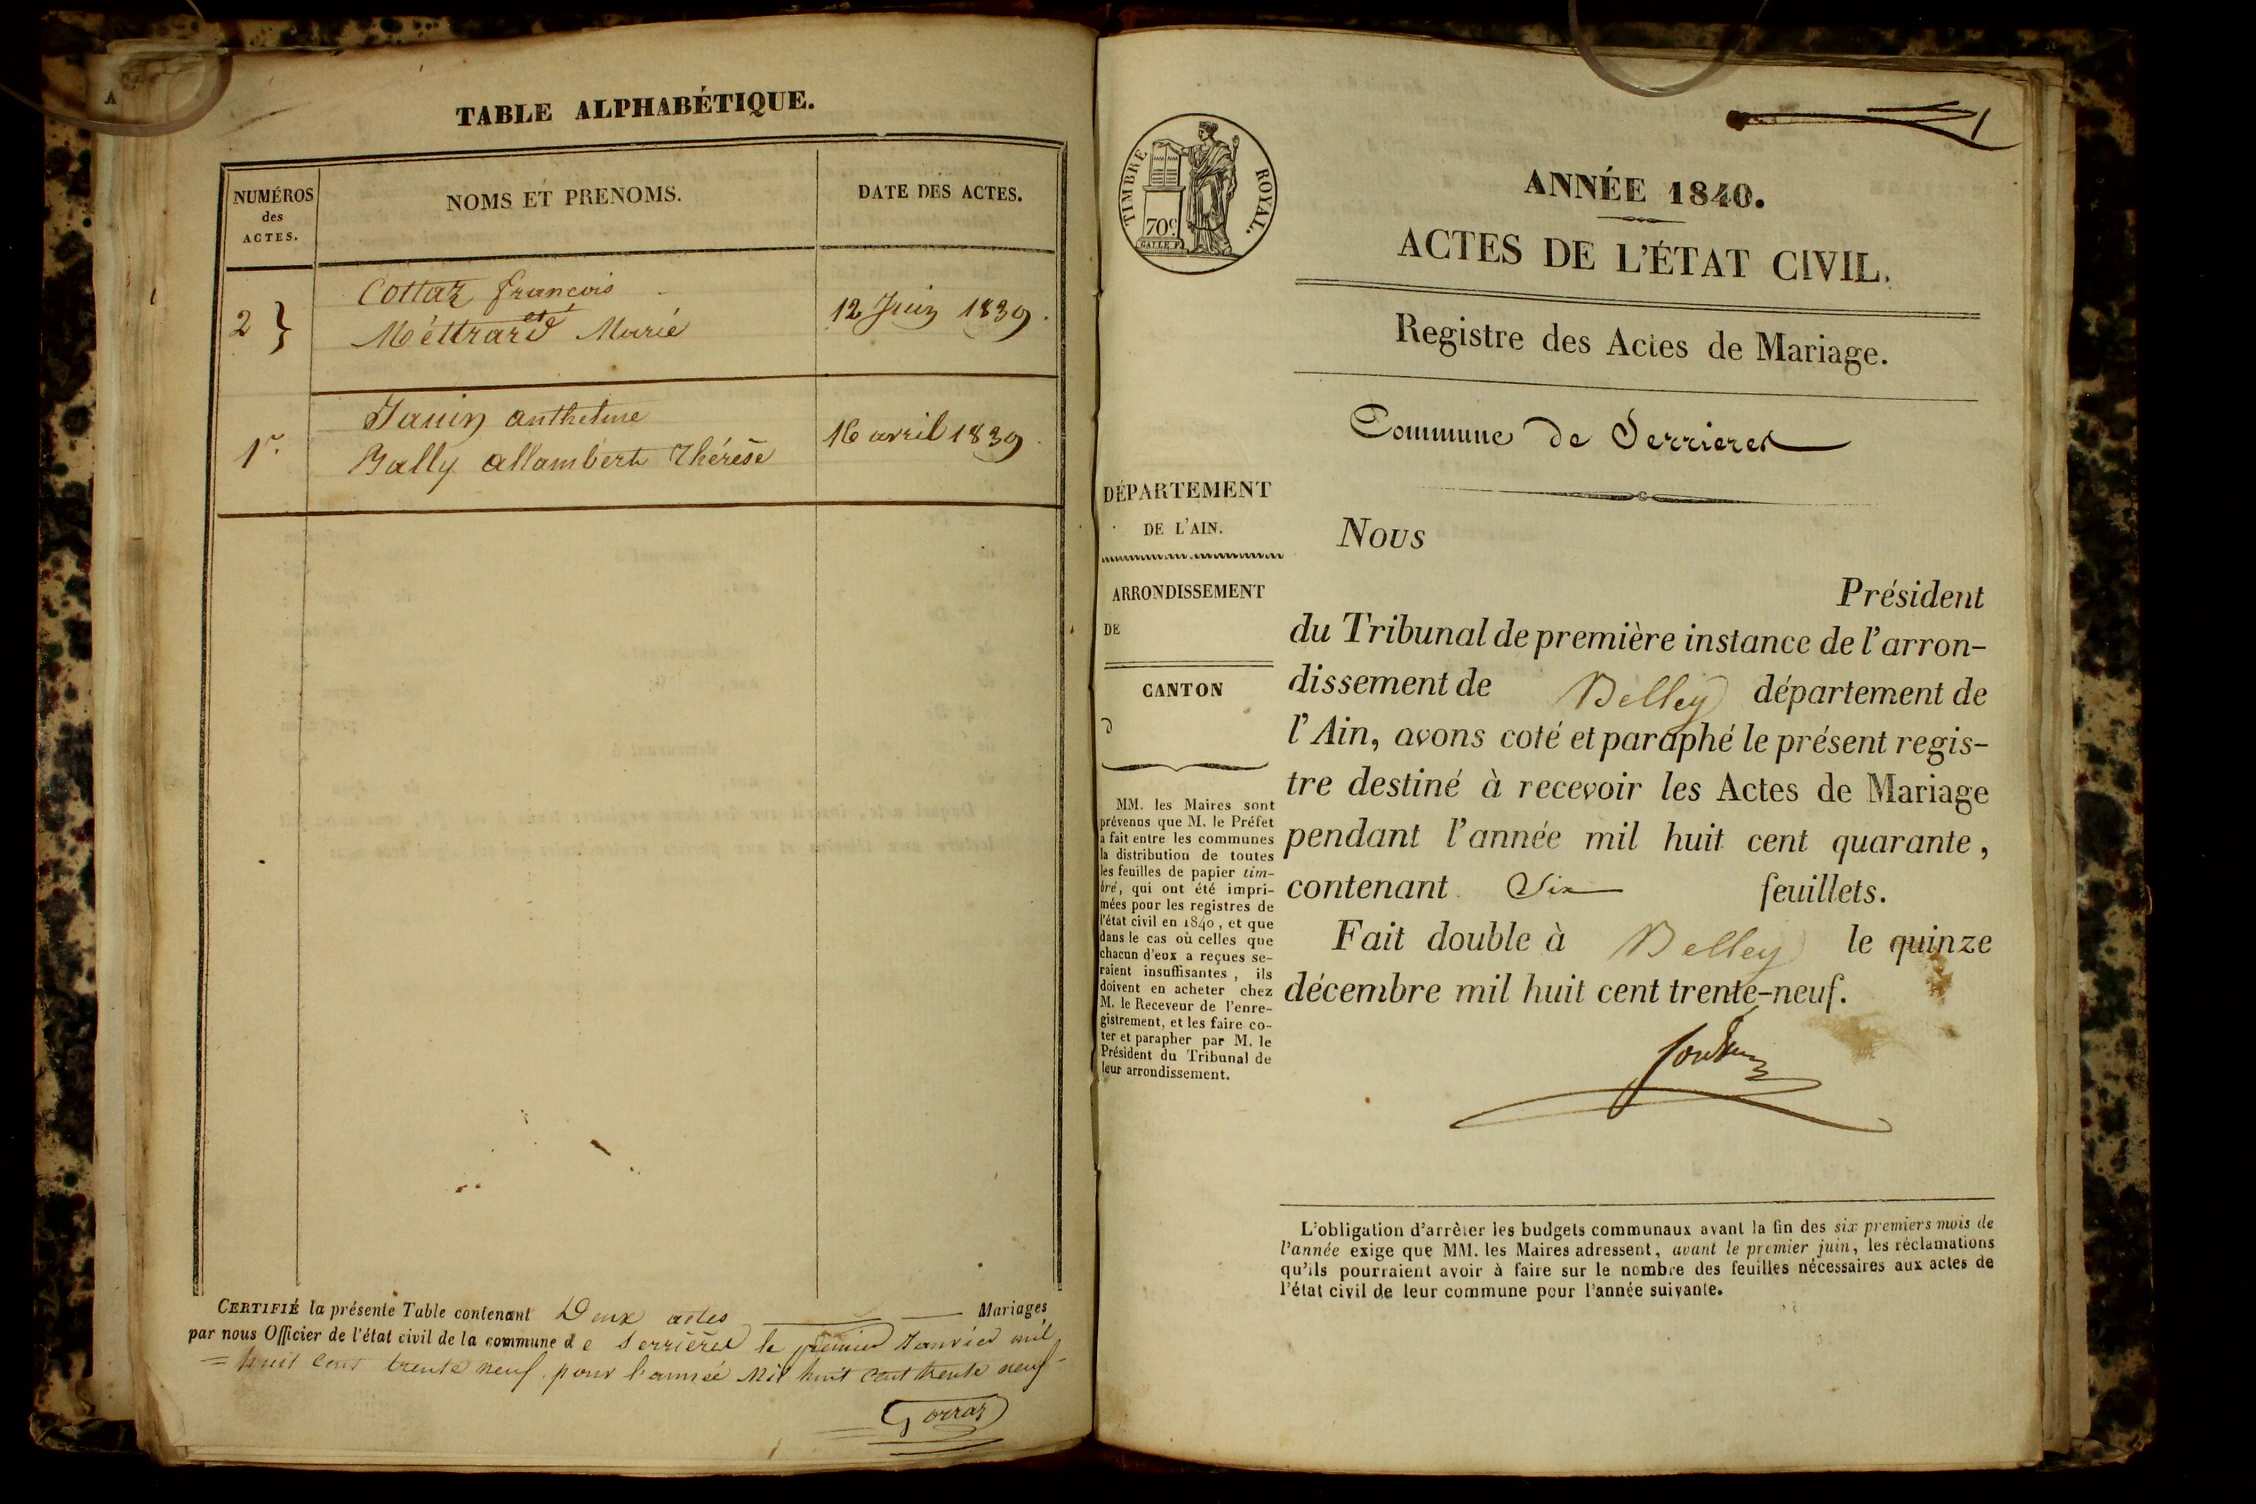 TABLE ALPHABÉTIQUE.
NUMÉROS
des
ACTES.
NOMS ET PRENOMS.
DATE DES ACTES.
2 }
Cottaz francois
et
Méttrard Marie
12 Juin 1839.
1r.
Janin anthelme
Bally allambert Thérèse
16 avril 1839.
CERTIFIÉ la présente Table contenant Deux actes Mariages
par nous Officier de l'état civil de la commune de Serrieres le premier Janvier mil
= huit cent trente neuf pour l'année Mil huit cent trente neuf -
Gorraz
TIMBRE ROYAL.
70c
GALLE F.
1
ANNÉE 1840.
ACTES DE L'ÉTAT CIVIL.
Registre des Actes de Mariage.
Commune de Serrieres
DÉPARTEMENT
DE L'AIN.
ARRONDISSEMENT
DE
CANTON
d
MM. les Maires sont
prévenus que M. le Préfet
a fait entre les communes
la distribution de toutes
les feuilles de papier tim-
bré, qui ont été impri-
mées pour les registres de
l'état civil en 1840, et que
dans le cas où celles que
chacun d'eux a reçues se-
raient insuffisantes, ils
doivent en acheter chez
M. le Receveur de l'enre-
gistrement, et les faire co-
ter et parapher par M. le
Président du Tribunal de
leur arrondissement.
Nous
Président
du Tribunal de première instance de l'arron-
dissement de Belley département de
l'Ain, avons coté et paraphé le présent regis-
tre destiné à recevoir les Actes de Mariage
pendant l'année mil huit cent quarante,
contenant Six feuillets.
Fait double à Belley le quinze
décembre mil huit cent trente-neuf.
L'obligation d'arrêter les budgets communaux avant la fin des six premiers mois de
l'année exige que MM. les Maires adressent, avant le premier juin, les réclamations
qu'ils pourraient avoir à faire sur le nombre des feuilles nécessaires aux actes de
l'état civil de leur commune pour l'année suivante.